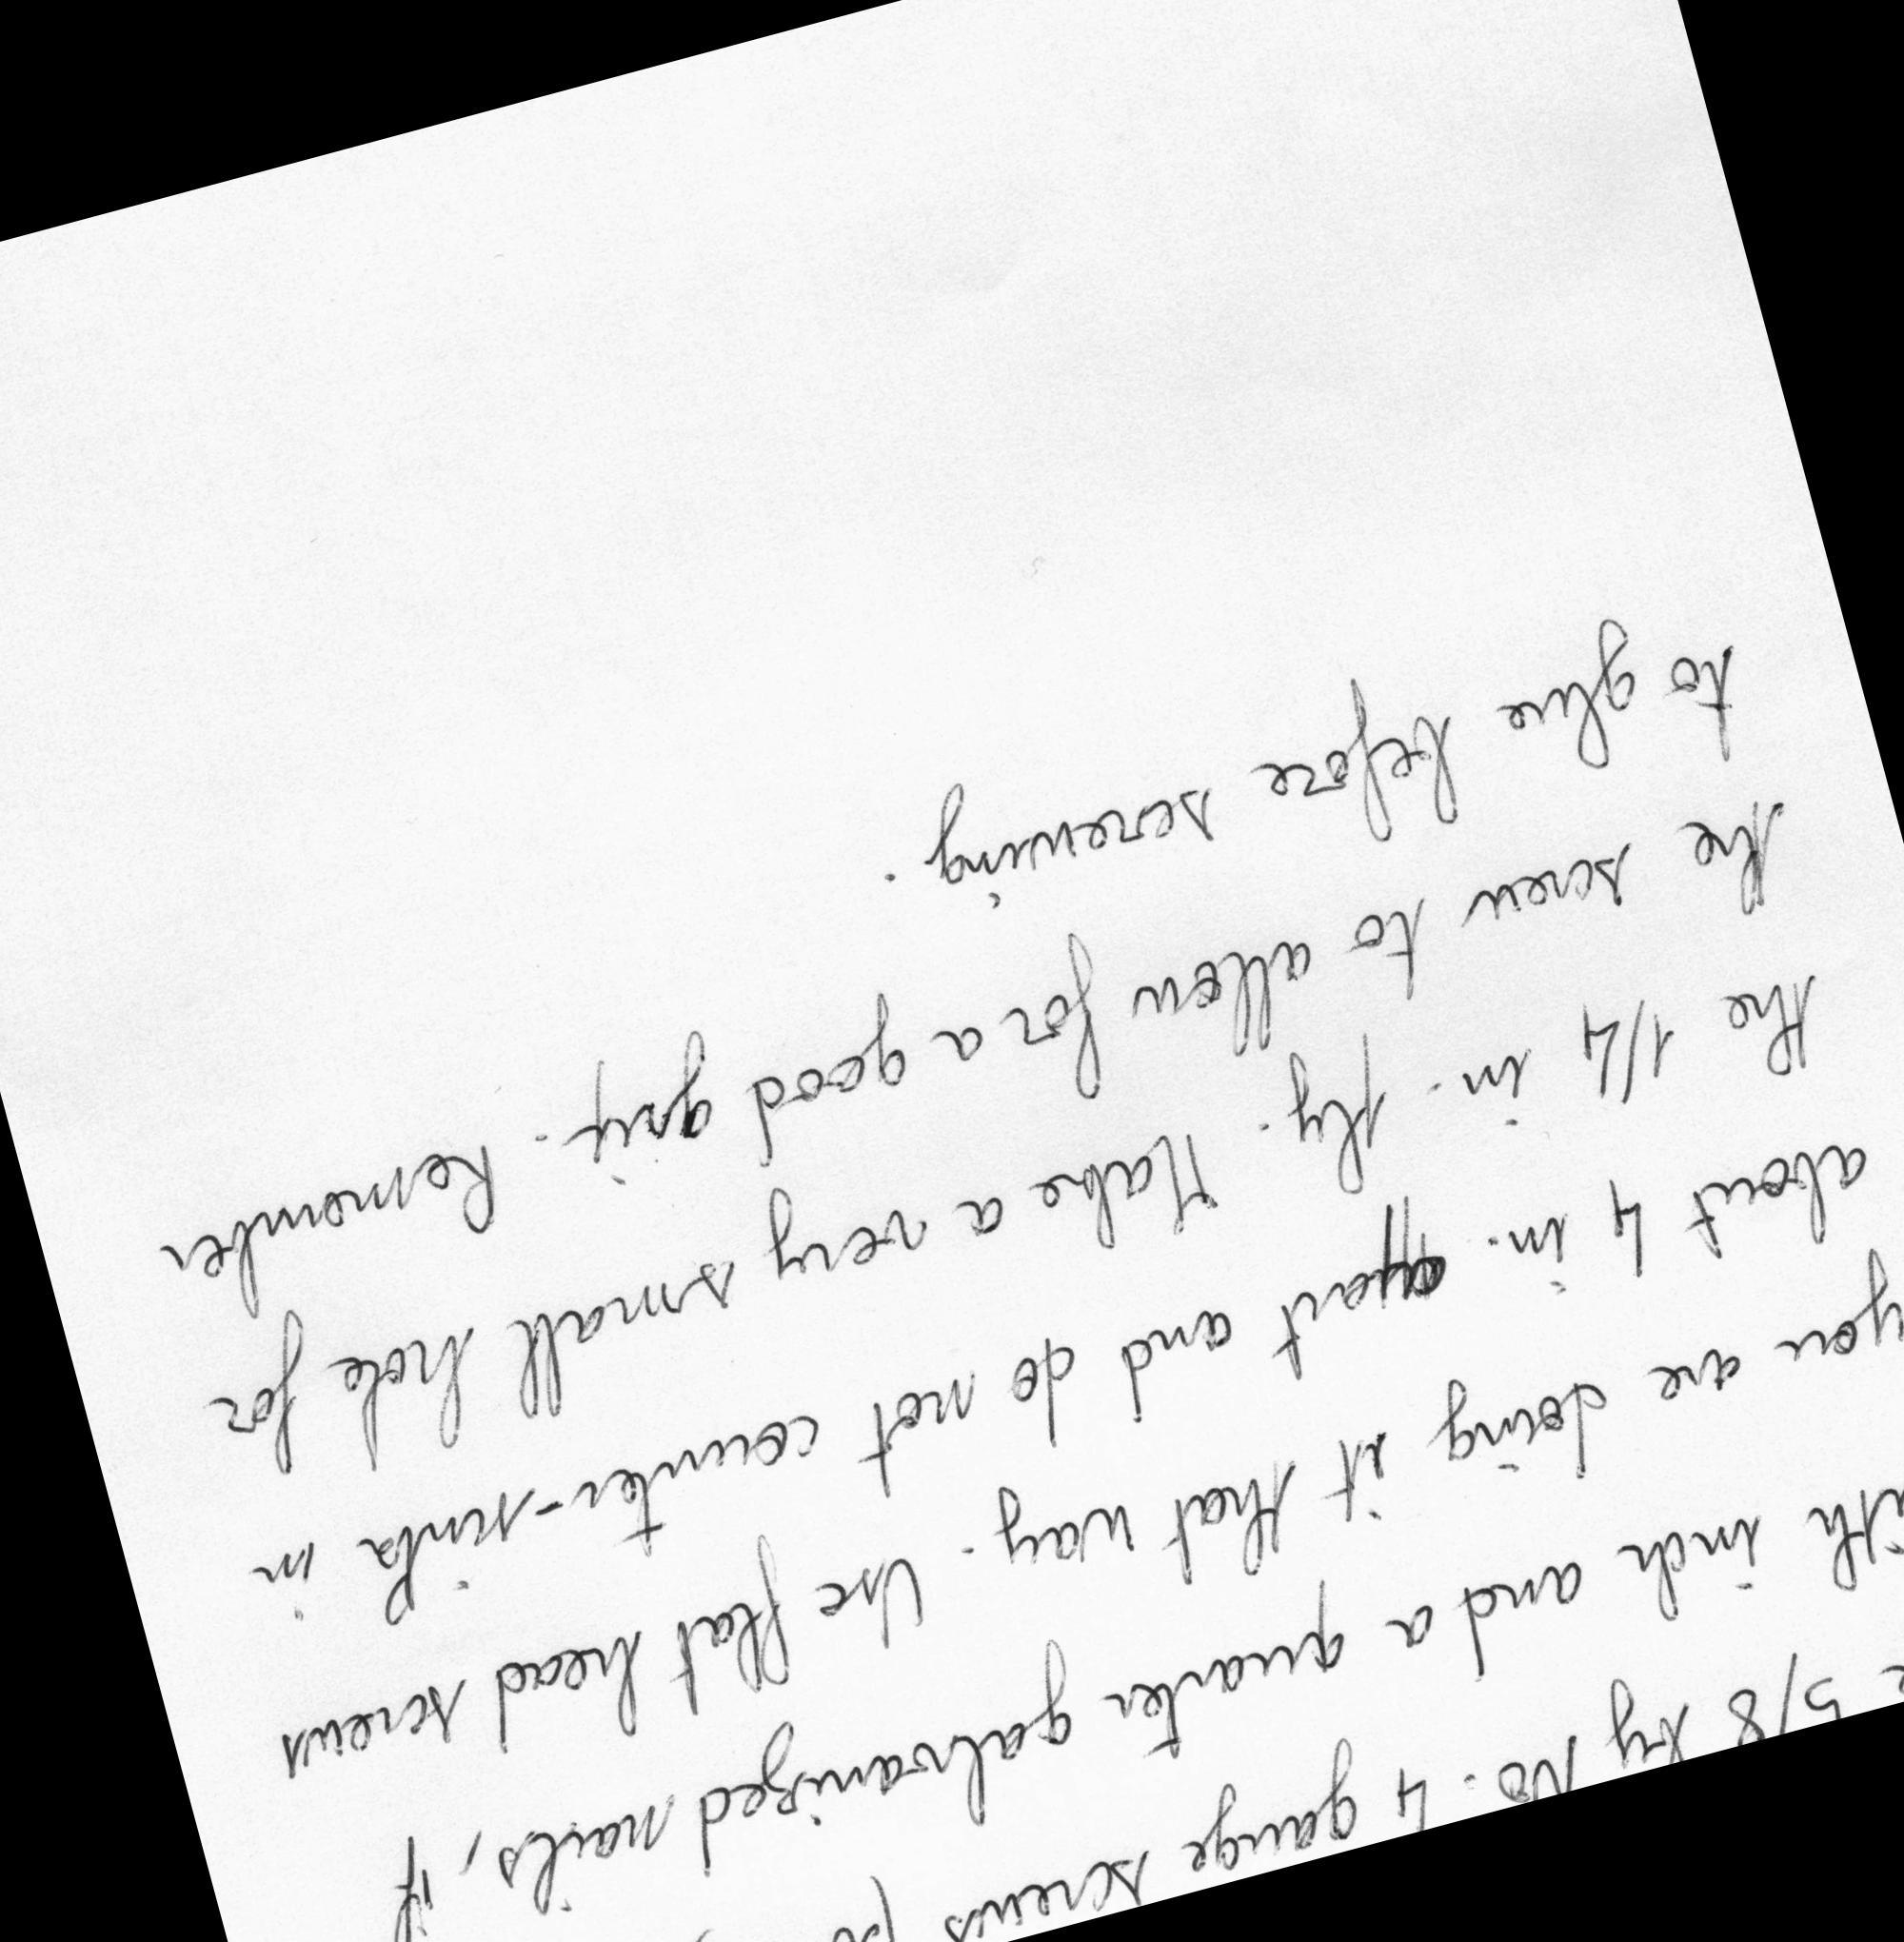 5/8 by No. 4 gauge screws
inch and a quarter galvanized nails, if
you are doing it that way. Use flat head screws
about 4 in. apart and do not counter-sink in
the 1/4 in. ply. Make a very small hole for
the screw to allow for a good grip. Remember
to glue before screwing.